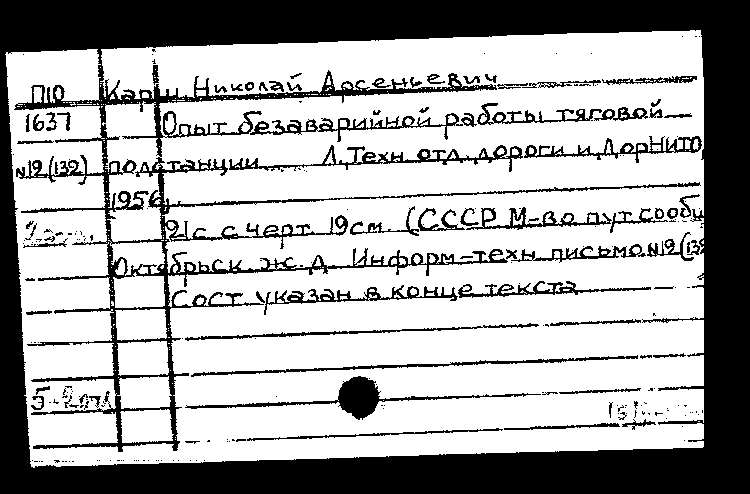 П10 Карш Николай Арсеньевич
1637 Опыт безаварийной работы тяговой
№12(132) подстанции Л, Техн отд дороги и ДорНИТО,
1956,
21с с черт. 19см. (СССР М-во пут сообщ
Октябрьск ж. д. Информ-техн письмо №12(132
Сост указан в конце текста